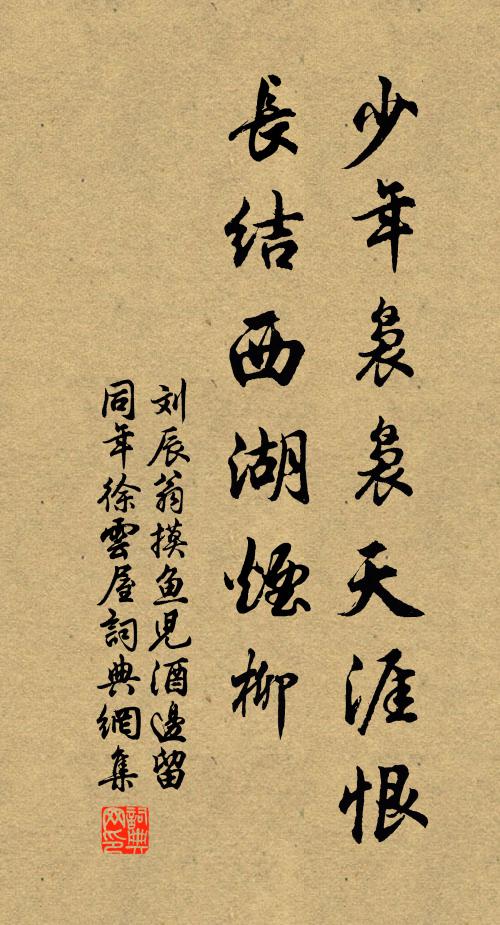 少年裊裊天涯恨
長结西湖煙柳
刘辰翁摸鱼児酒邊留
同年徐雲屋詞典網集
詞典
网印